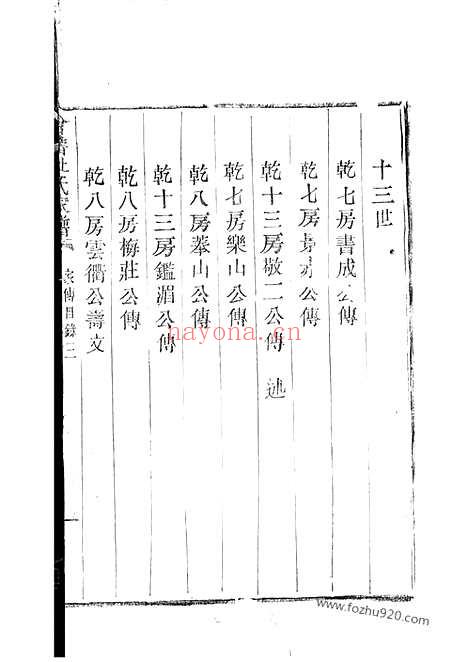 十三世
乾七房書成公傳
乾七房公傳
乾十三房敬二公傳 述
乾七房樂山公傳
乾八房峯山公傳
乾十三房鑑湄公傳
乾八房梅莊公傳
乾八房雲衢公壽文
杜氏家譜 家傳目錄
nayona.cn
www.fozhu920.com